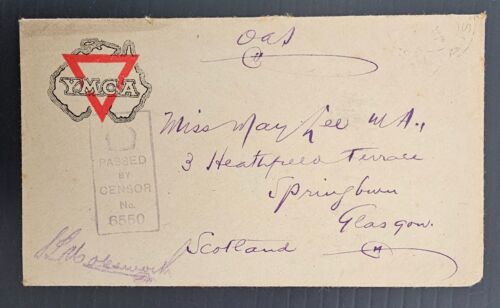 OAS
YMCA
Miss May Lee M.A.,
3 Heathfield Terrace
Springburn
Glasgow.
Scotland
PASSED
BY
CENSOR
No.
6550